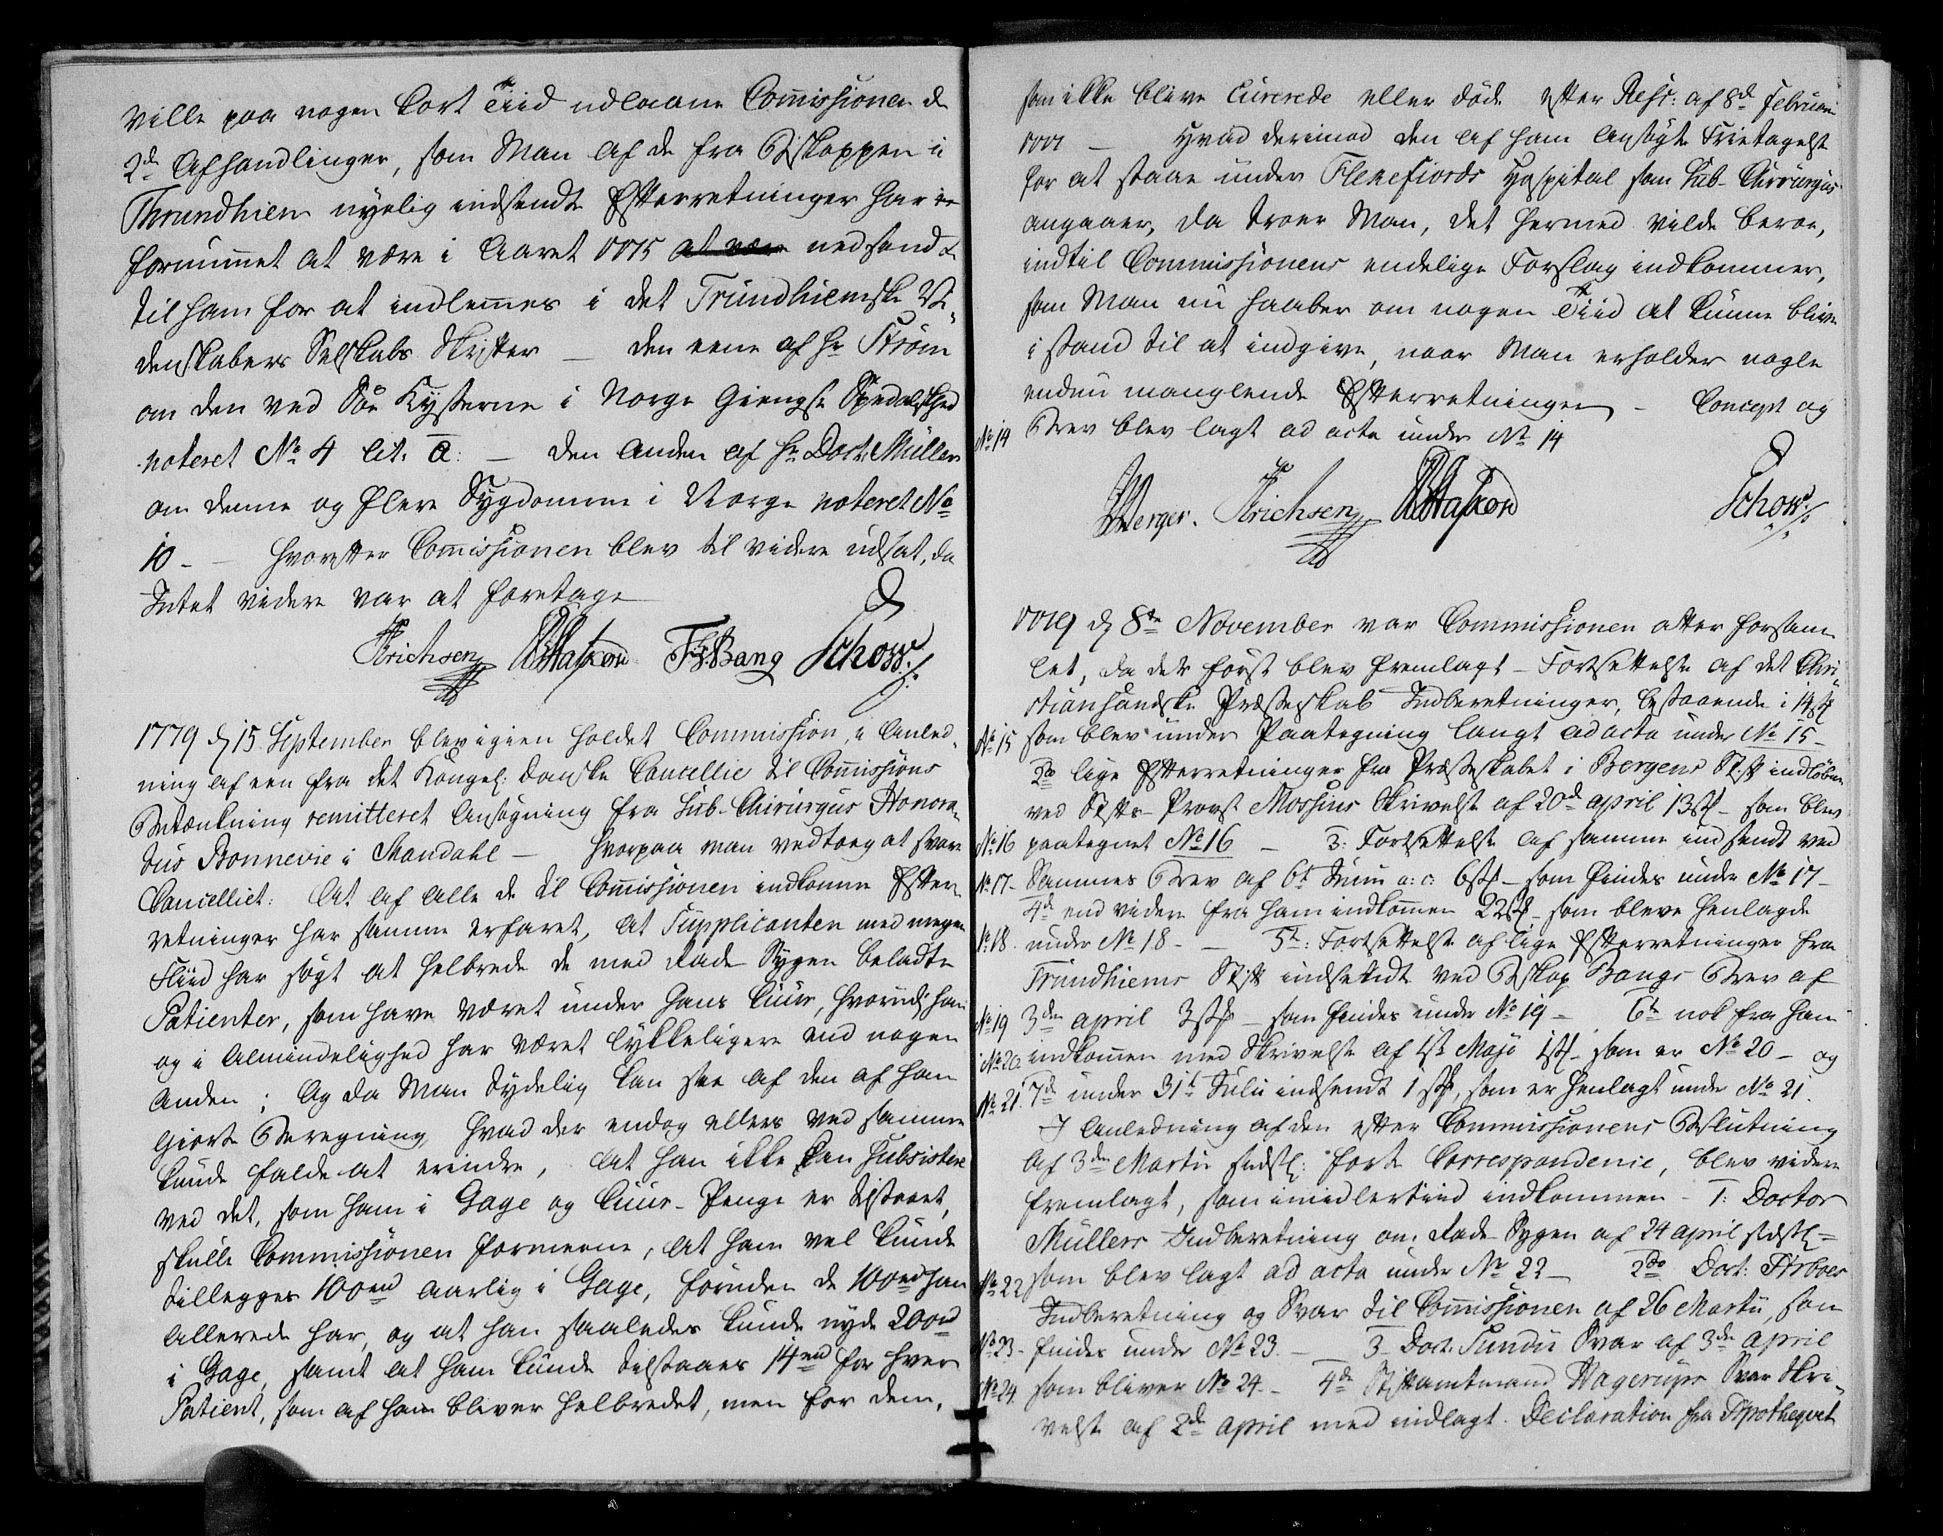 ville paa nogen kort Tiid udlaane Commissionen de
2de Afhandlinger, som Man af de fra Biskoppen i
Thrundhiem nyelig indsendte Efterretninger har
fornummet at være i Aaret 1775 at være nedsendte
til ham for at indlemmes i det Trundhiemske Vi„
denskabers Selskabs Skrifter — den eene af Hr Strøm
om den ved Søe Kysterne i Norge Giengse Spedalskhed
noteret No 4 lit. a: — den anden af Hr Doct: Müller
om denne og flere Sygdomme i Norge noteret No
10 — hvorefter Commissionen blev til videre udsat, da
Intet videre var at foretage
Erichsen FrBang Schow./.
1779 d 15 September blev igien holdet Commission, i Anled„
ning af een fra det Kongel: danske Cancellie til Commissions
Betænkning remitteret Ansøgning fra Sub-Chirurgus Honora„
tus Bonnevie i Mandahl — hvorpaa man vedtoeg at svare
Cancelliet: At af alle de til Commissionen indkomne Efter„
retninger har samme erfaret, at Supplicanten med megen
Fliid har søgt at helbrede de med Rade Sygen beladte
Patienter, som have været under hans Cuur, hvorudi han
og i Almindelighed har været lykkeligere end nogen
anden; Og da Man tydelig kan see af den af ham
giorte Beregning, hvad der endog ellers ved samme
kunde falde at erindre, at han ikke kan subsistere
ved det, som ham i Gage og Cuur-Penge er tilstaaet,
skulle Commissionen formeene, at ham vel kunde
tillegges 100rd aarlig i Gage, foruden de 100rd han
allerede har, og at han saaledes kunde nyde 200rd
i Gage, samt at ham kunde tilstaaes 14rd for hver
Patient, som af ham bliver helbredet, men for dem,
som ikke blive Curerede eller døde efter Resc: af 8de Februari
1771 — Hvad derimod den af ham ansøgte Frietagelse
for at staae under Flekefiords Hospital som Sub-Chirurgus
angaaer, da troer Man, det hermed vilde beroe,
indtil Commissionens endelige Forslag indkommer,
som Man nu haaber om nogen Tiid at kunne blive
i stand til at indgive, naar Man erholder nogle
endnu manglende Efterretninger — Concept og
No 14 Brev blev lagt ad acta under No 14
Berger. Erichsen Schow./.
1779 d 8de November var Commissionen atter forsam„
let, da der først blev fremlagt — Fortsettelse af det Chri„
stiansandske Præsteskab Indberetninger, bestaaende i 14 st
No 15 som blev under Paategning langt ad acta under No 15 —
2do lige Efterretninger fra Præsteskabet i Bergens Stift indløbne
ved Stifts-Provst Mossins Skrivelse af 20de april 13 st — som blev
No 16 paategnet No 16 — 3: Fortsettelse af samme indsendt ved
No 17 — Sammes Brev af 6te Junii a: c: 6 st — som findes under No 17 —
4de end videre fra ham indkommen 22 st — som bleve henlagde
No 18. under No 18 — — 5te: Fortsettelse af lige Efterretninger fra
Trundhiems Stift indsendt ved Biskop Bangs Brev af
No 19 3den april 3 st — som findes under No 19 — 6te nok fra ham
No 20. indkommen med Skrivelse af 1ste Majo 1 st — som er No 20 — og
No 21. 7de under 31te Julii indsendt 1 st, som er henlagt under No 21.
I Anledning af den efter Commissionens Beslutning
af 3den Martii sidstl: førte Correspondence, blev videre
fremlagt, som imidlertiid indkommen — 1: Doctor
Müllers Indberetning om Rade Sygen af 24 april sidstl —
No 22 som blev lagt ad acta under No 22 — 2do Doct: Arboes
Indberetning og Svar til Commissionen af 26 Martii, som
No 23 — findes under No 23. — 3 Doct: Svar af 3de April
No 24 som bliver No 24. — 4de Stiftamtmand Hagerups Svar Skri„
velse af 2de April med indlagt Declaration fra Apotheqvet